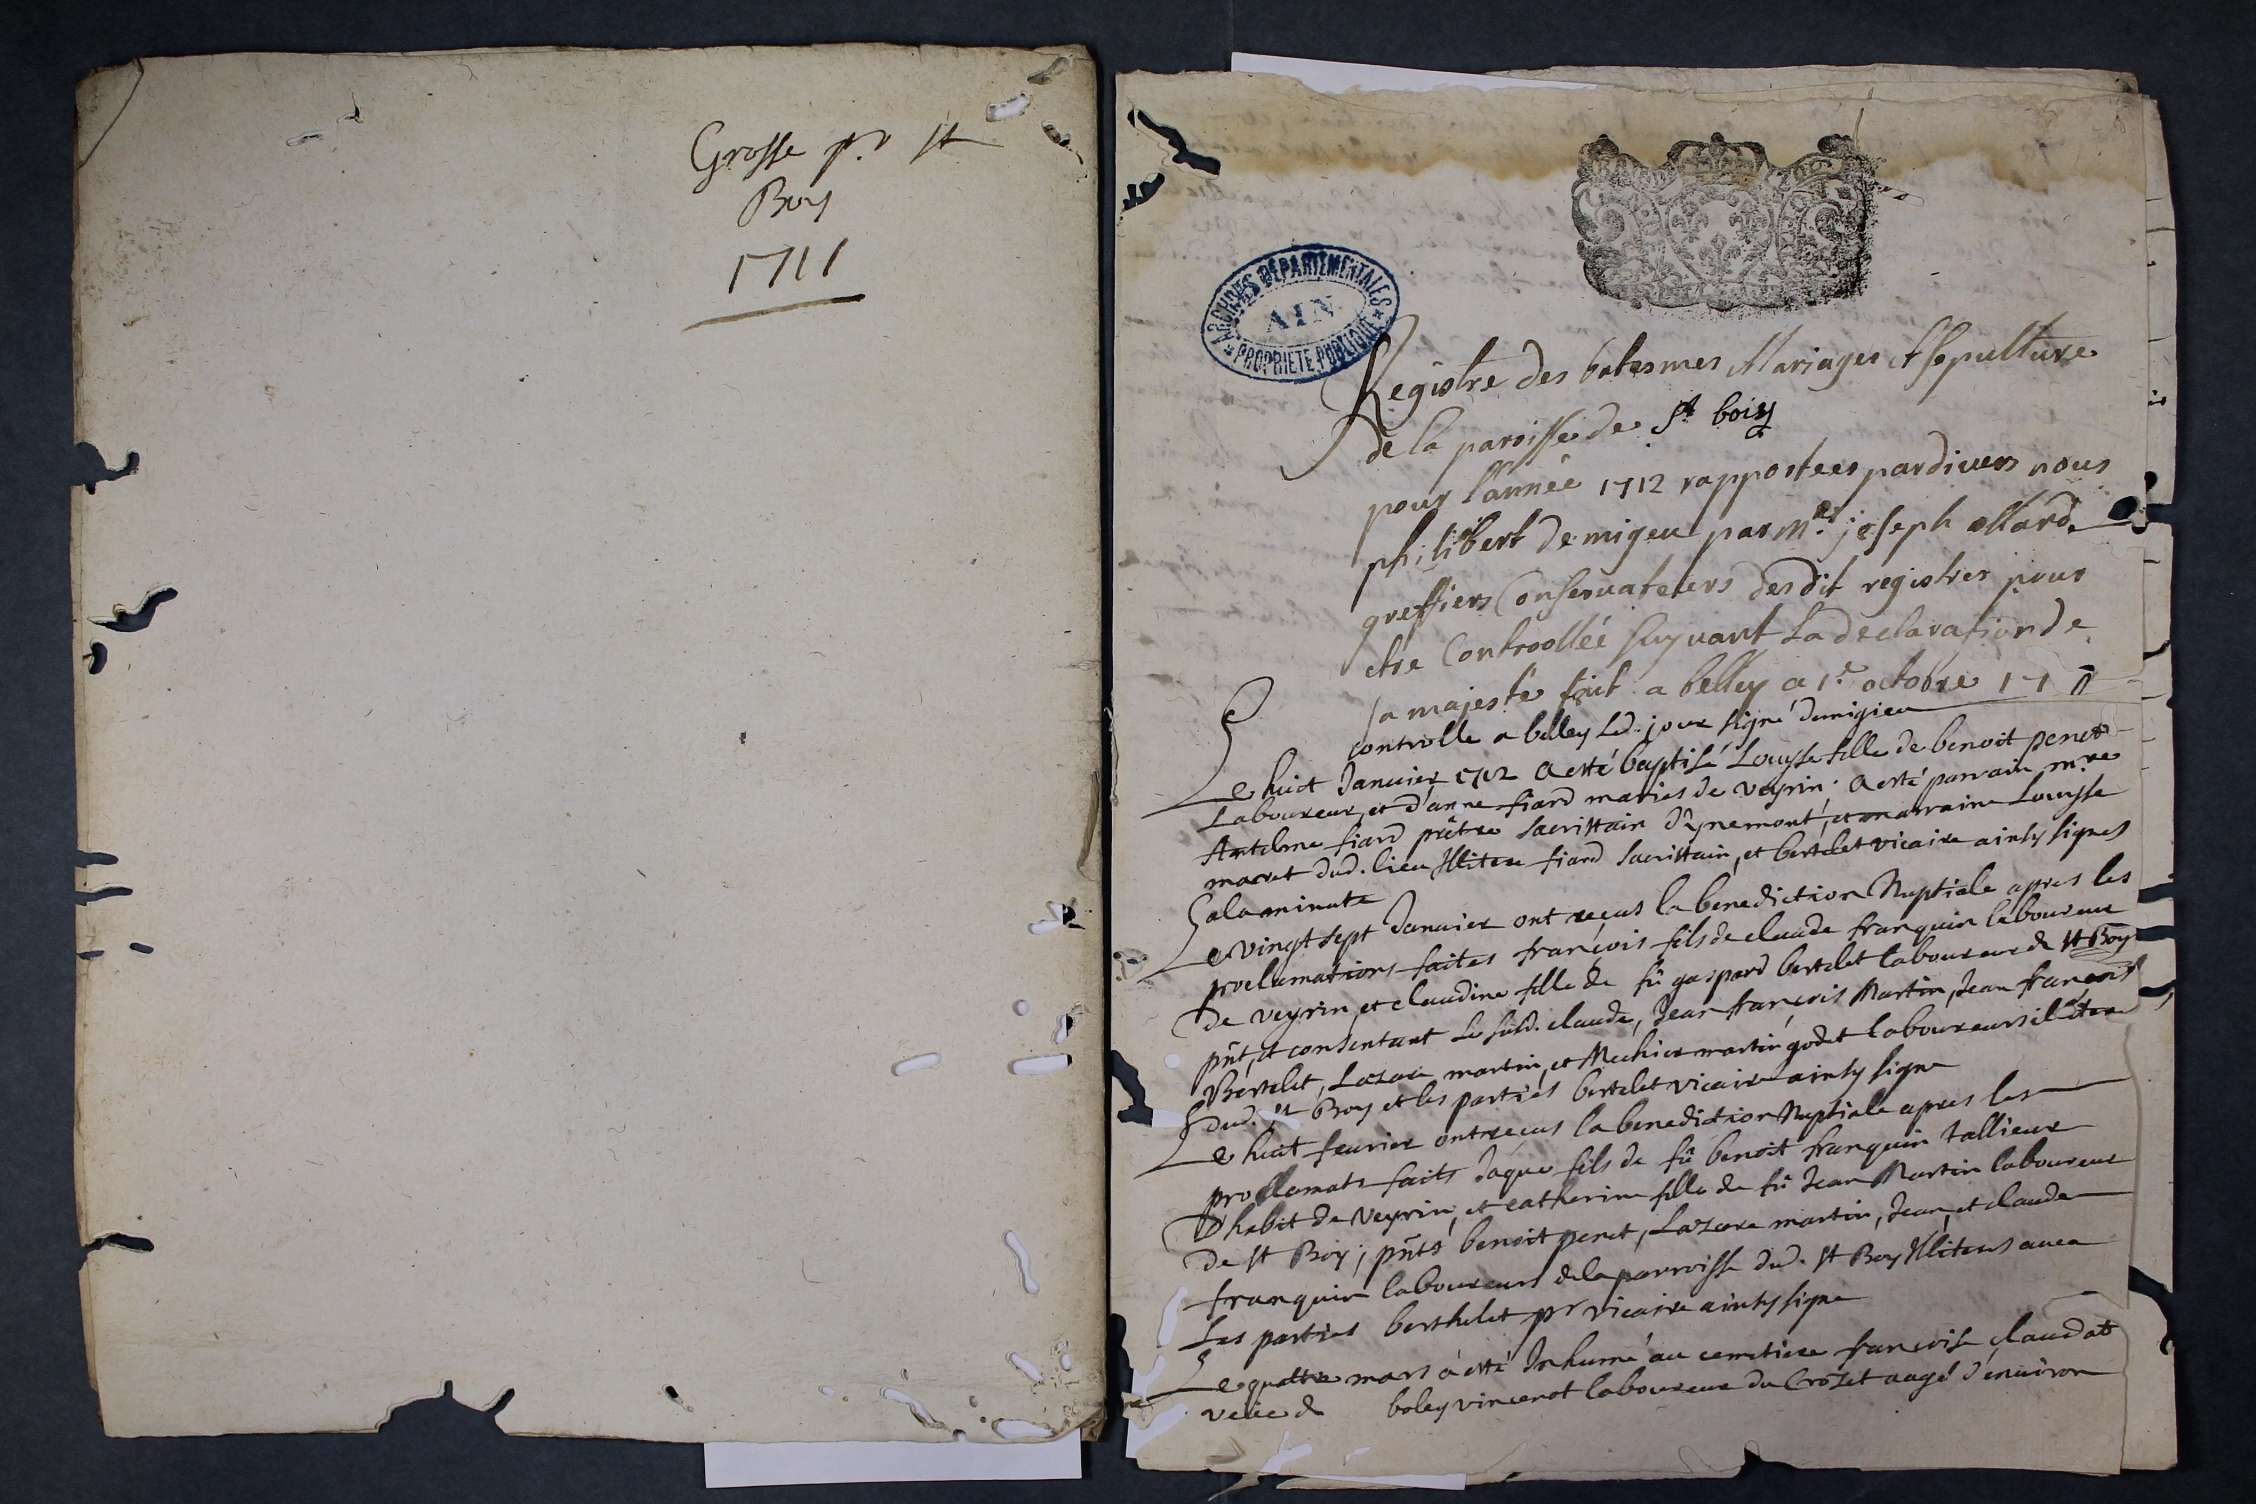 Grosse pr St
Boys
1711
ARCHIVES DÉPARTEMENTALES
AIN
PROPRIÉTÉ PUBLIQUE
Registre des batesmes Mariages et sepulture
de la paroisse de St bois
pour l'année 1712 rapportees par divers nous
philibert demigeu par Mr joseph allard
greffiers Conservateurs desdit registres pour
etre Controollée suyvant La declaration de
sa majesté fait a belley a 1r octobre 171
controlle a belley led. jour signé demigieu
Le huict Janvier 1712 a esté baptisé Louyse fille de benoit penet
Laboureur, et d'anne fiard mariés de veyrin: a esté parrain mre
Antelme fiard prêtre sacristain d'Ynemont, et marraine Louyse
maret dud. lieu Illitere fiard sacristain, et bertelet vicaire ainsy signes
a la minute
Le vingt sept Janvier ont reçus la benediction Nuptiale apres les
proclamations faites françois fils de claude franquin laboureur
de veyrin et claudine fille de fû gaspard bertelet laboureur de St Boys
pnt, et consentant le susd. claude, Jean françois Martin, Jean françois
Bertelet, Lazare martin, et Mechior martin godet laboureurs
dud. St Boys et les parties bertelet vicaire ainsy signe
Le huit fevrier ont reçus la benediction Nuptiale apres les
proclamats faits Jaque fils de fû benoit franquin tallieur
d'habit de Veyrin, et catherine fille de fû Jean Martin laboureur
de St Boy; pnts benoit penet, Lazare martin, Jean, et claude
franquin laboureurs de la parroisse dud. St Boy Illiteres avec
Les parties berthelet pr vicaire ainsy signe
Le quattre mars à esté Inhumé au cemetiere françoise claudat
veüe de boley vincenot laboureur du Crozet aagé d'environ